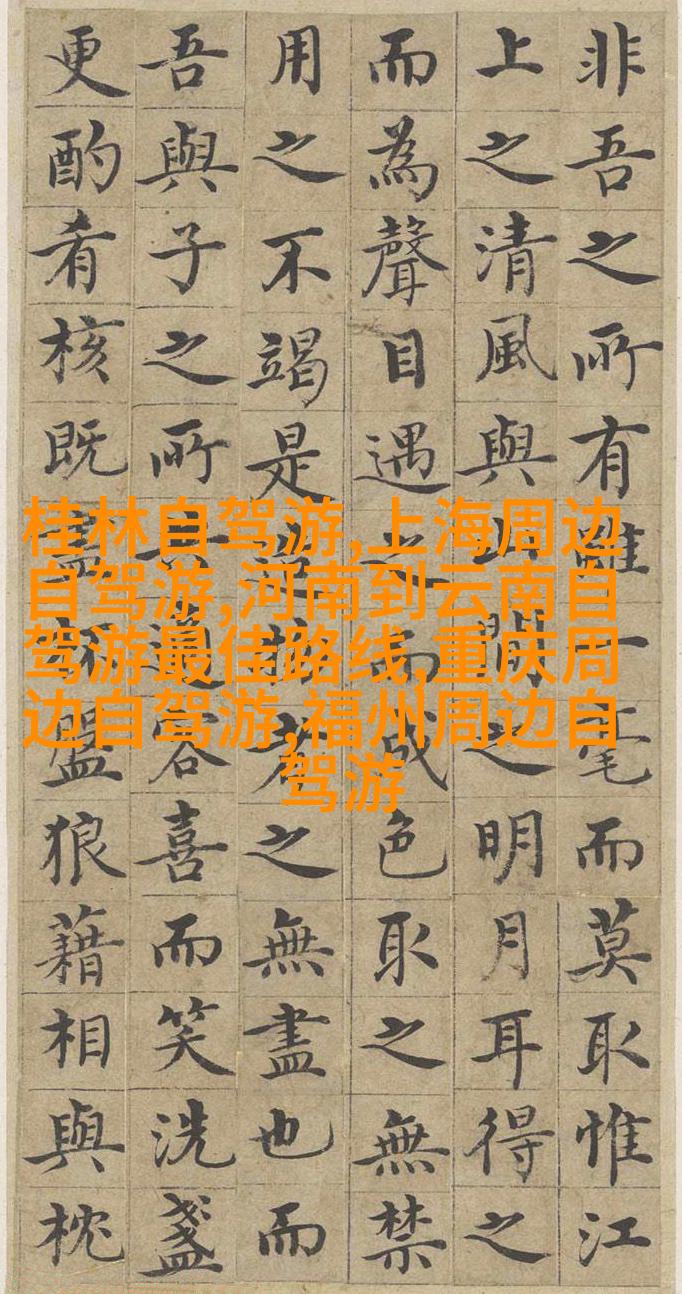 非吾之所有雖一毫而莫取惟江
上之清風與山間之明月耳得之
而為聲目遇之而成色取之無禁
用之不竭是造物者之無盡也而
吾與子之所共適客喜而笑洗盞
更酌肴核既盡杯盤狼藉相與枕
桂林自驾游,上海周边
自驾游,河南到云南自
驾游最佳路线,重庆周
边自驾游,福州周边自
驾游